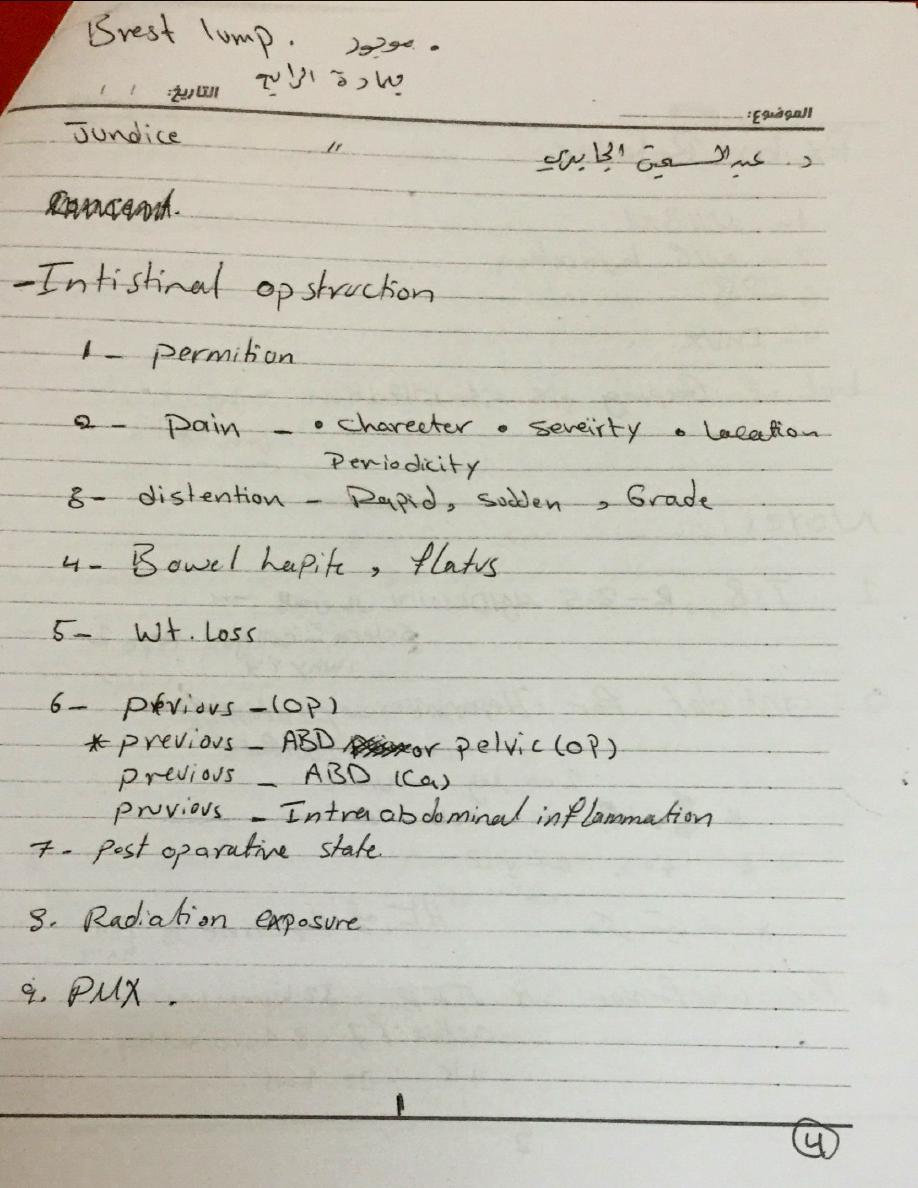 Brest lump. موجود.
بمادة الرابع
التاريخ: / /
الموضوع:
Jundice "
د. عبد السميع الجابري
- Intistinal opstruction
1 - permition
2 - Pain - • charecter • seveirty • Lacation
Periodicity
3 - distention - Rapid, sudden, Grade
4 - Bowel hapite, flatus
5 - Wt. Loss
6 - previous - (OP)
* previous - ABD or pelvic (OP)
previous - ABD (Ca)
pruvious - Intra abdominal inflammation
7 - post oparative state
8. Radiation exposure
9. PMX.
4